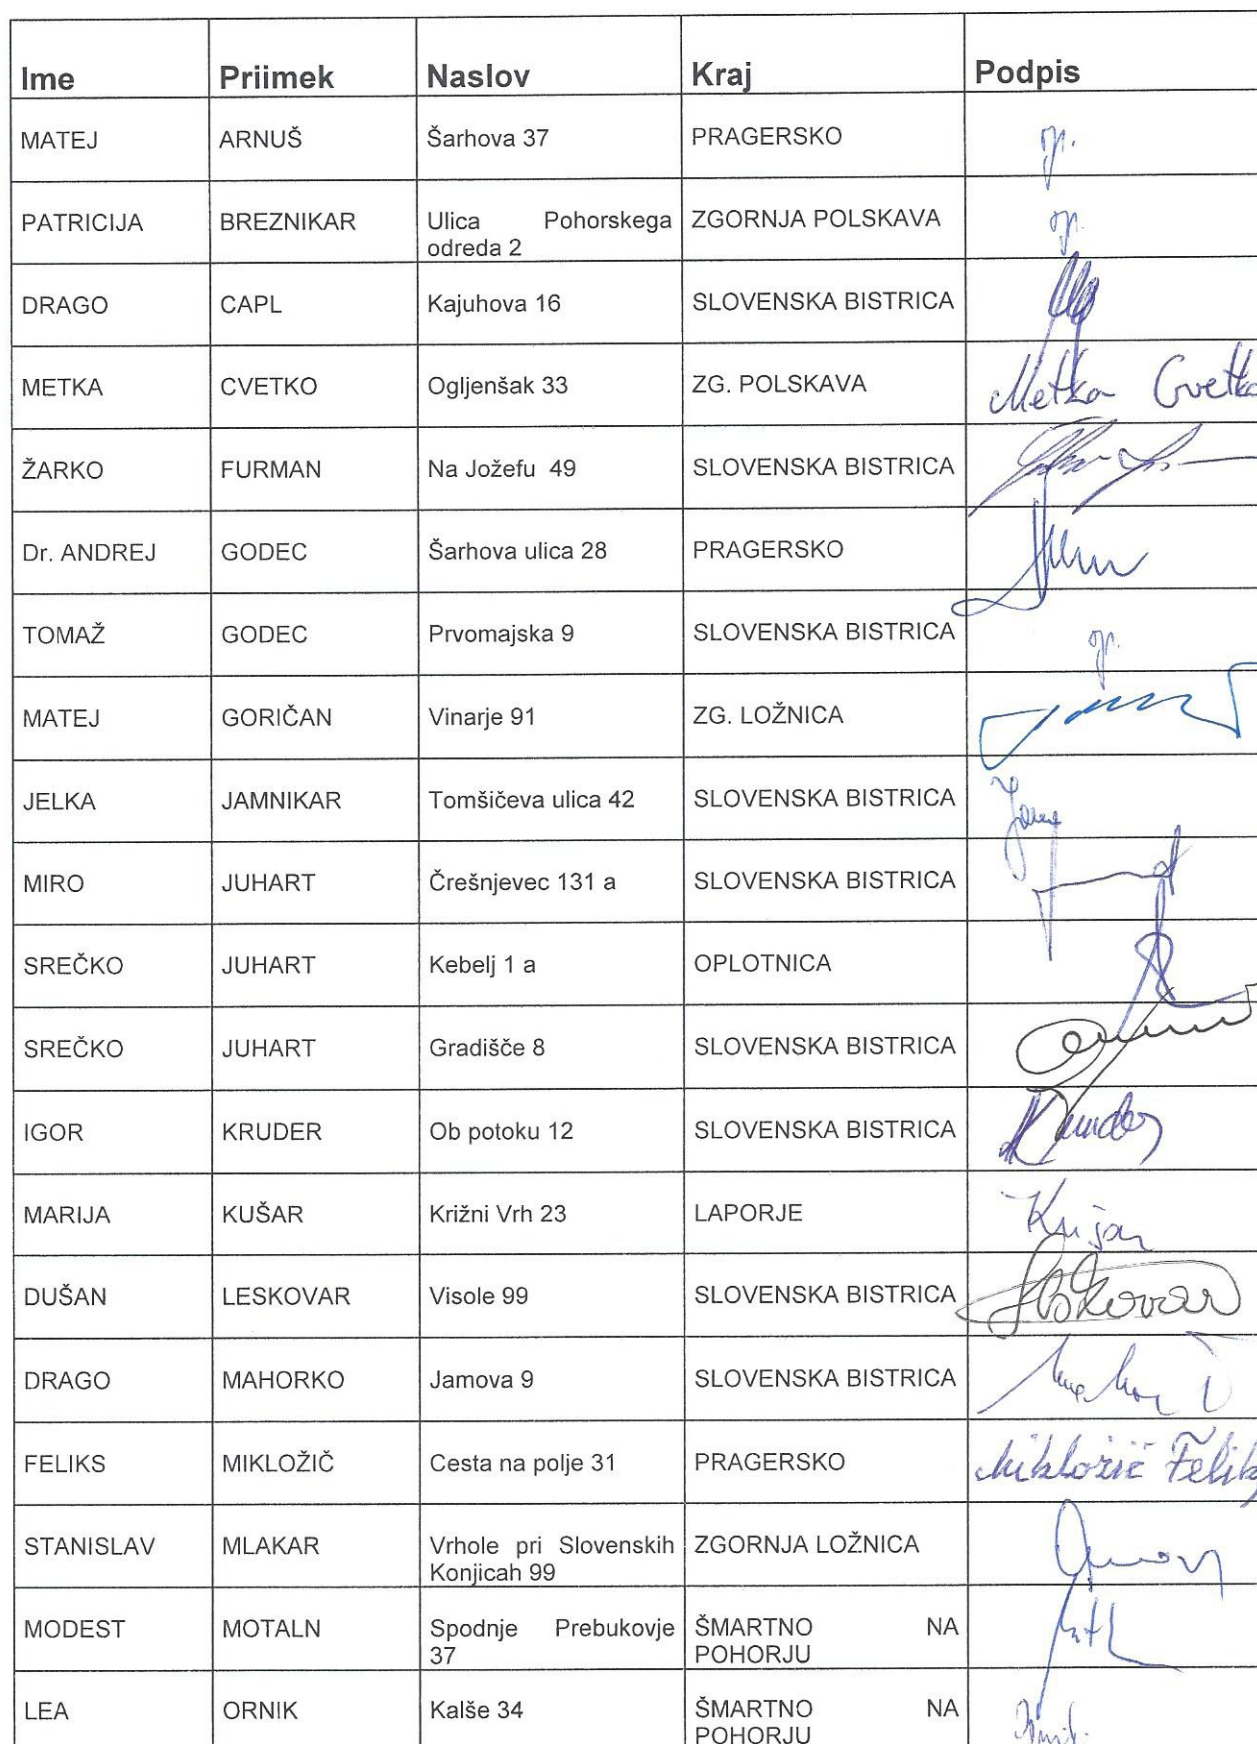 Ime Priimek Naslov Kraj Podpis
MATEJ ARNUŠ Šarhova 37 PRAGERSKO
PATRICIJA BREZNIKAR Ulica Pohorskega ZGORNJA POLSKAVA
odreda 2
DRAGO CAPL Kajuhova 16 SLOVENSKA BISTRICA
METKA CVETKO Ogljenšak 33 ZG. POLSKAVA Metka Cvetko
ŽARKO FURMAN Na Jožefu 49 SLOVENSKA BISTRICA
Dr. ANDREJ GODEC Šarhova ulica 28 PRAGERSKO
TOMAŽ GODEC Prvomajska 9 SLOVENSKA BISTRICA
MATEJ GORIČAN Vinarje 91 ZG. LOŽNICA
JELKA JAMNIKAR Tomšičeva ulica 42 SLOVENSKA BISTRICA
MIRO JUHART Črešnjevec 131 a SLOVENSKA BISTRICA
SREČKO JUHART Kebelj 1 a OPLOTNICA
SREČKO JUHART Gradišče 8 SLOVENSKA BISTRICA
IGOR KRUDER Ob potoku 12 SLOVENSKA BISTRICA Kruder
MARIJA KUŠAR Križni Vrh 23 LAPORJE Kušar
DUŠAN LESKOVAR Visole 99 SLOVENSKA BISTRICA Leskovar
DRAGO MAHORKO Jamova 9 SLOVENSKA BISTRICA
FELIKS MIKLOŽIČ Cesta na polje 31 PRAGERSKO Mikložič Feliks
STANISLAV MLAKAR Vrhole pri Slovenskih ZGORNJA LOŽNICA
Konjicah 99
MODEST MOTALN Spodnje Prebukovje ŠMARTNO NA
37 POHORJU
LEA ORNIK Kalše 34 ŠMARTNO NA
POHORJU